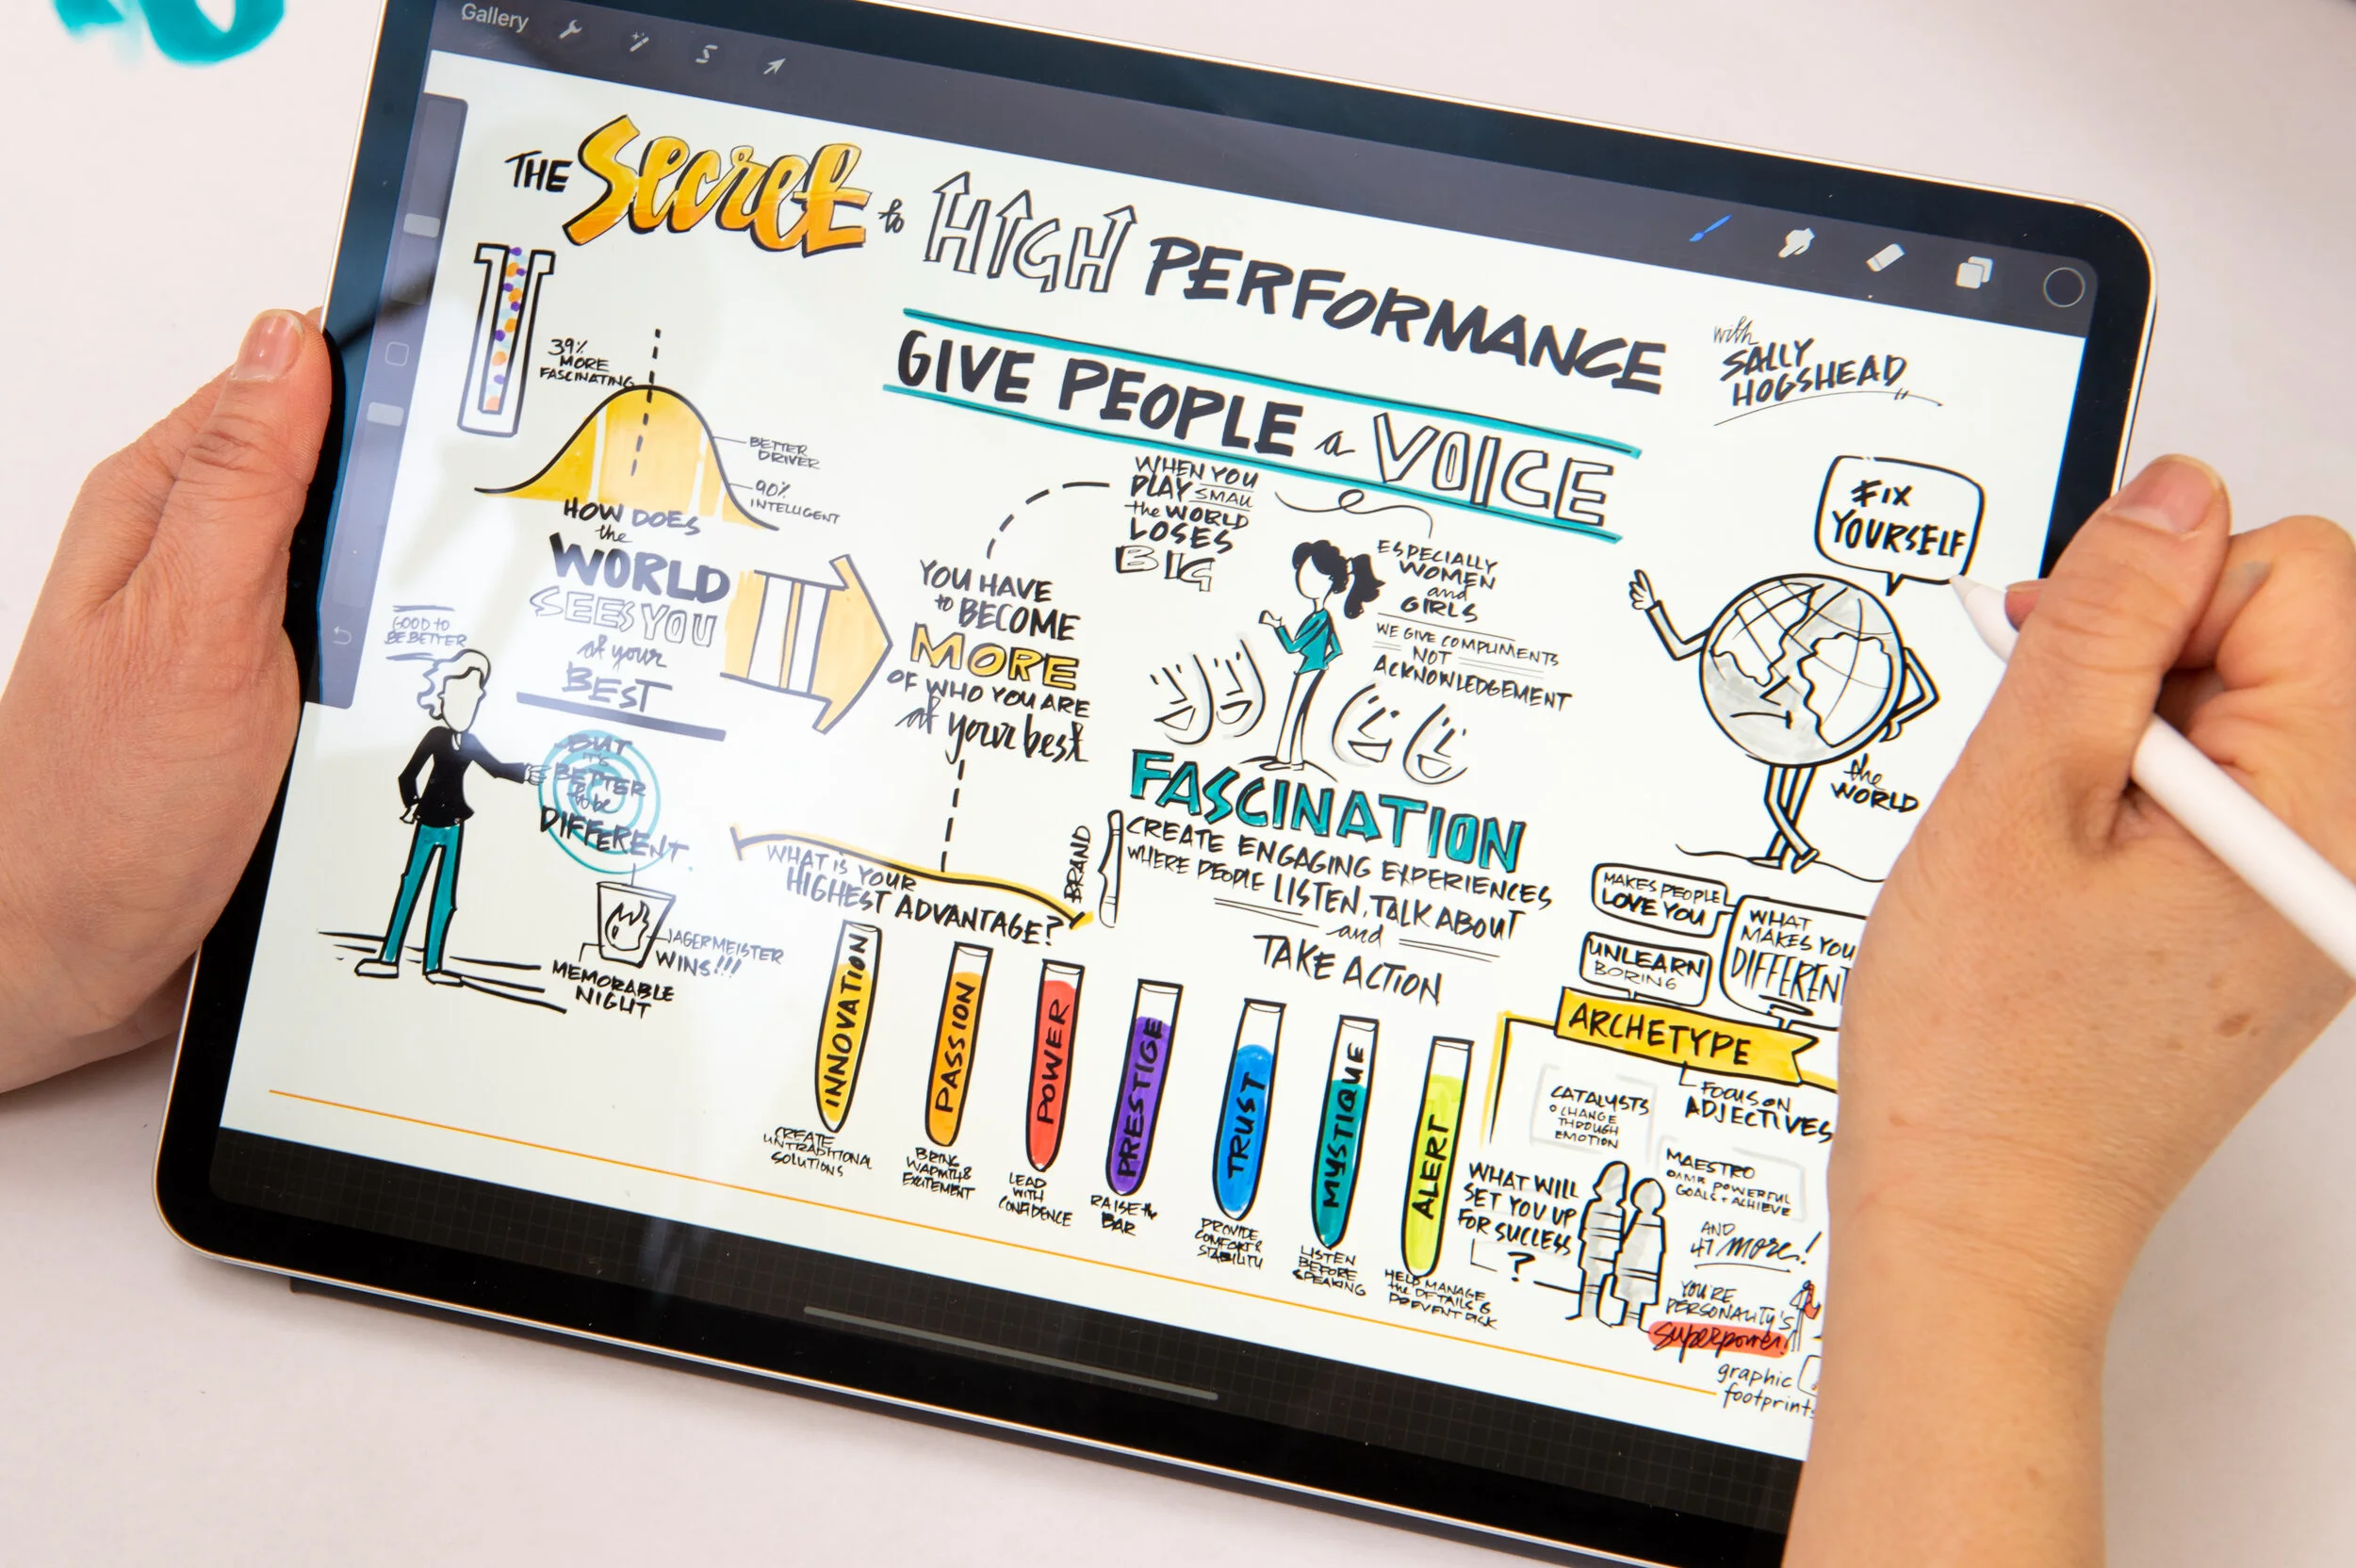 Gallery
THE Secret to HIGH PERFORMANCE
with
SALLY
HOGSHEAD
GIVE PEOPLE a VOICE
39%
MORE
FASCINATING
BETTER
DRIVER
90%
INTELLIGENT
HOW DOES
the
WORLD
SEES YOU
at your
BEST
GOOD TO
BE BETTER
BUT
IT'S
BETTER
to be
DIFFERENT
JAGERMEISTER
WINS!!!
MEMORABLE
NIGHT
YOU HAVE
to BECOME
MORE
OF WHO YOU ARE
at your best
WHEN YOU
PLAY SMALL
the WORLD
LOSES
BIG
ESPECIALLY
WOMEN
and
GIRLS
WE GIVE COMPLIMENTS
NOT
ACKNOWLEDGEMENT
FIX
YOURSELF
the
WORLD
FASCINATION
BRAND
CREATE ENGAGING EXPERIENCES
WHERE PEOPLE LISTEN, TALK ABOUT
and
TAKE ACTION
WHAT IS YOUR
HIGHEST ADVANTAGE?
INNOVATION
CREATE
UNTRADITIONAL
SOLUTIONS
PASSION
BRING
WARMTH &
EXCITEMENT
POWER
LEAD
WITH
CONFIDENCE
PRESTIGE
RAISE the
BAR
TRUST
PROVIDE
COMFORT &
STABILITY
MYSTIQUE
LISTEN
BEFORE
SPEAKING
ALERT
HELP MANAGE
the DETAILS &
PREVENT RISK
MAKES PEOPLE
LOVE YOU
UNLEARN
BORING
WHAT
MAKES YOU
DIFFERENT
ARCHETYPE
FOCUS ON
ADJECTIVES
CATALYSTS
CHANGE
THROUGH
EMOTION
MAESTRO
POWERFUL
GOALS + ACHIEVE
WHAT WILL
SET YOU UP
FOR SUCCESS
?
AND
47 more!
YOU'RE
PERSONALITY'S
superpower!
graphic
footprints